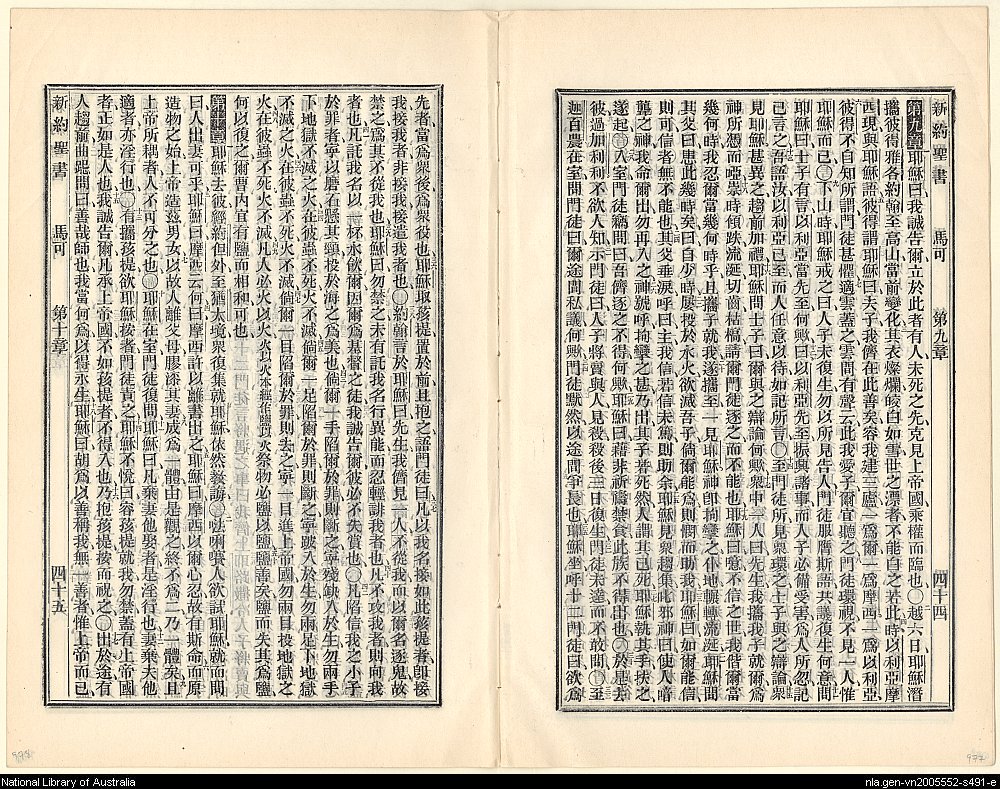 新約聖書 馬可 第九章 四十四
第九章耶穌曰我誠告爾立於此者有人未死之先克見上帝國乘權而臨也○越六日耶穌潛
攜彼得雅各約翰至高山當前變化其衣燦爛皎白如雪世之漂者不能白之若此時以利亞摩
西現與耶穌語彼得謂耶穌曰夫子我儕在此善矣容我建三廬一爲爾一爲摩西一爲以利亞
彼得不自知所謂門徒甚懼適雲蓋之雲間有聲云此我愛子爾宜聽之門徒環視不見一人惟
耶穌而已○下山時耶穌戒之曰人子未復生勿以所見告人門徒服膺斯語共議復生何意問
耶穌曰士子有言以利亞當先至何歟曰以利亞先至振興諸事而人子必備受害爲人所忽記
已言之吾語汝以利亞已至而人任意以待如記所言○至門徒所見衆環之士子與之辯論衆
見耶穌甚異之趨前加禮耶穌問士子曰爾與之辯論何歟衆中一人曰先生我攜我子就爾爲
神所憑而啞祟時傾跌流涎切齒枯槁請爾門徒逐之而不能也耶穌曰噫不信之世我偕爾當
幾何時我忍爾當幾何時乎且攜子就我遂攜至一見耶穌神卽拘攣之仆地輾轉流涎耶穌問
其父曰患此幾時矣曰自少時屢投於水火欲滅吾子倘爾能爲則憫而助我耶穌曰如爾能信
其可信者無不能也其父垂淚呼曰主我信若信未篤則助余耶穌見衆趨集叱邪神曰使人暗
聾之神我命爾出勿再入之神號呼拘攣之甚乃出其子若死然人謂其已死耶穌執其手扶之
遂起○入室門徒竊問曰吾儕逐之不得何歟耶穌曰藉非祈禱禁食此族不得出也○於是去
彼過加利利不欲人知示門徒曰人子將賣與人見殺殺後三日復生門徒未達而不敢問○至
迦百農在室問門徒曰爾途間私議何歟門徒默然以途間爭長也耶穌坐呼十二門徒曰欲爲
新約聖書 馬可 第十章 四十五
先者當爲衆後爲衆役也耶穌取孩提置於前且抱之語門徒曰凡以我名接如此孩提者卽接
我接我者非接我接遣我者也○約翰言於耶穌曰先生我儕見一人不從我而以爾名逐鬼故
禁之爲其不從我也耶穌曰勿禁之未有託我名行異能而忍輕誹我者也凡不攻我者則向我
者也凡託我名以一杯水飲爾因爾爲基督之徒我誠告爾彼必不失賞也○凡陷信我之小子
者寧以磨石懸其頸投於海之爲美也倘爾一手陷爾於罪則斷之寧殘缺入於生勿兩手
下地獄不滅之火在彼蟲不死火不滅倘爾一足陷爾於罪則斷之寧跛入於生勿兩足下地獄
不滅之火在彼蟲不死火不滅倘爾一目陷爾於罪則去之寧一目進上帝國勿兩目投地獄之
火在彼蟲不死火不滅凡人必火以火祭物必鹽以鹽鹽善矣鹽而失其爲鹽
何以復之爾曹內宜有鹽而相和可也
第十章耶穌去彼經約但外至猶太境衆復集就耶穌依然敎誨○𠵽唎㘔人欲試耶穌就而問
曰人出妻可乎耶穌曰摩西云何曰摩西許以離書出之耶穌曰摩西以爾心忍故有斯命而原
造物之始上帝造茲男女以故人離父母膠漆其妻成爲一體由是觀之終不爲二乃一體矣且
上帝所耦者人不可分之也○耶穌在室門徒復問耶穌曰凡棄妻他娶者是淫行也妻棄夫他
適者亦淫行也○有攜孩提欲耶穌按者門徒責之耶穌不悅曰容孩提就我勿禁蓋有上帝國
者正如是人也我誠告爾凡承上帝國不如孩提者不得入也乃抱孩提按而祝之○出於途有
人趨前曲跽問曰善哉師也我當何爲以得永生耶穌曰胡爲以善稱我無一善者惟上帝而已
National Library of Australia
nla.gen-vn2005552-s491-e